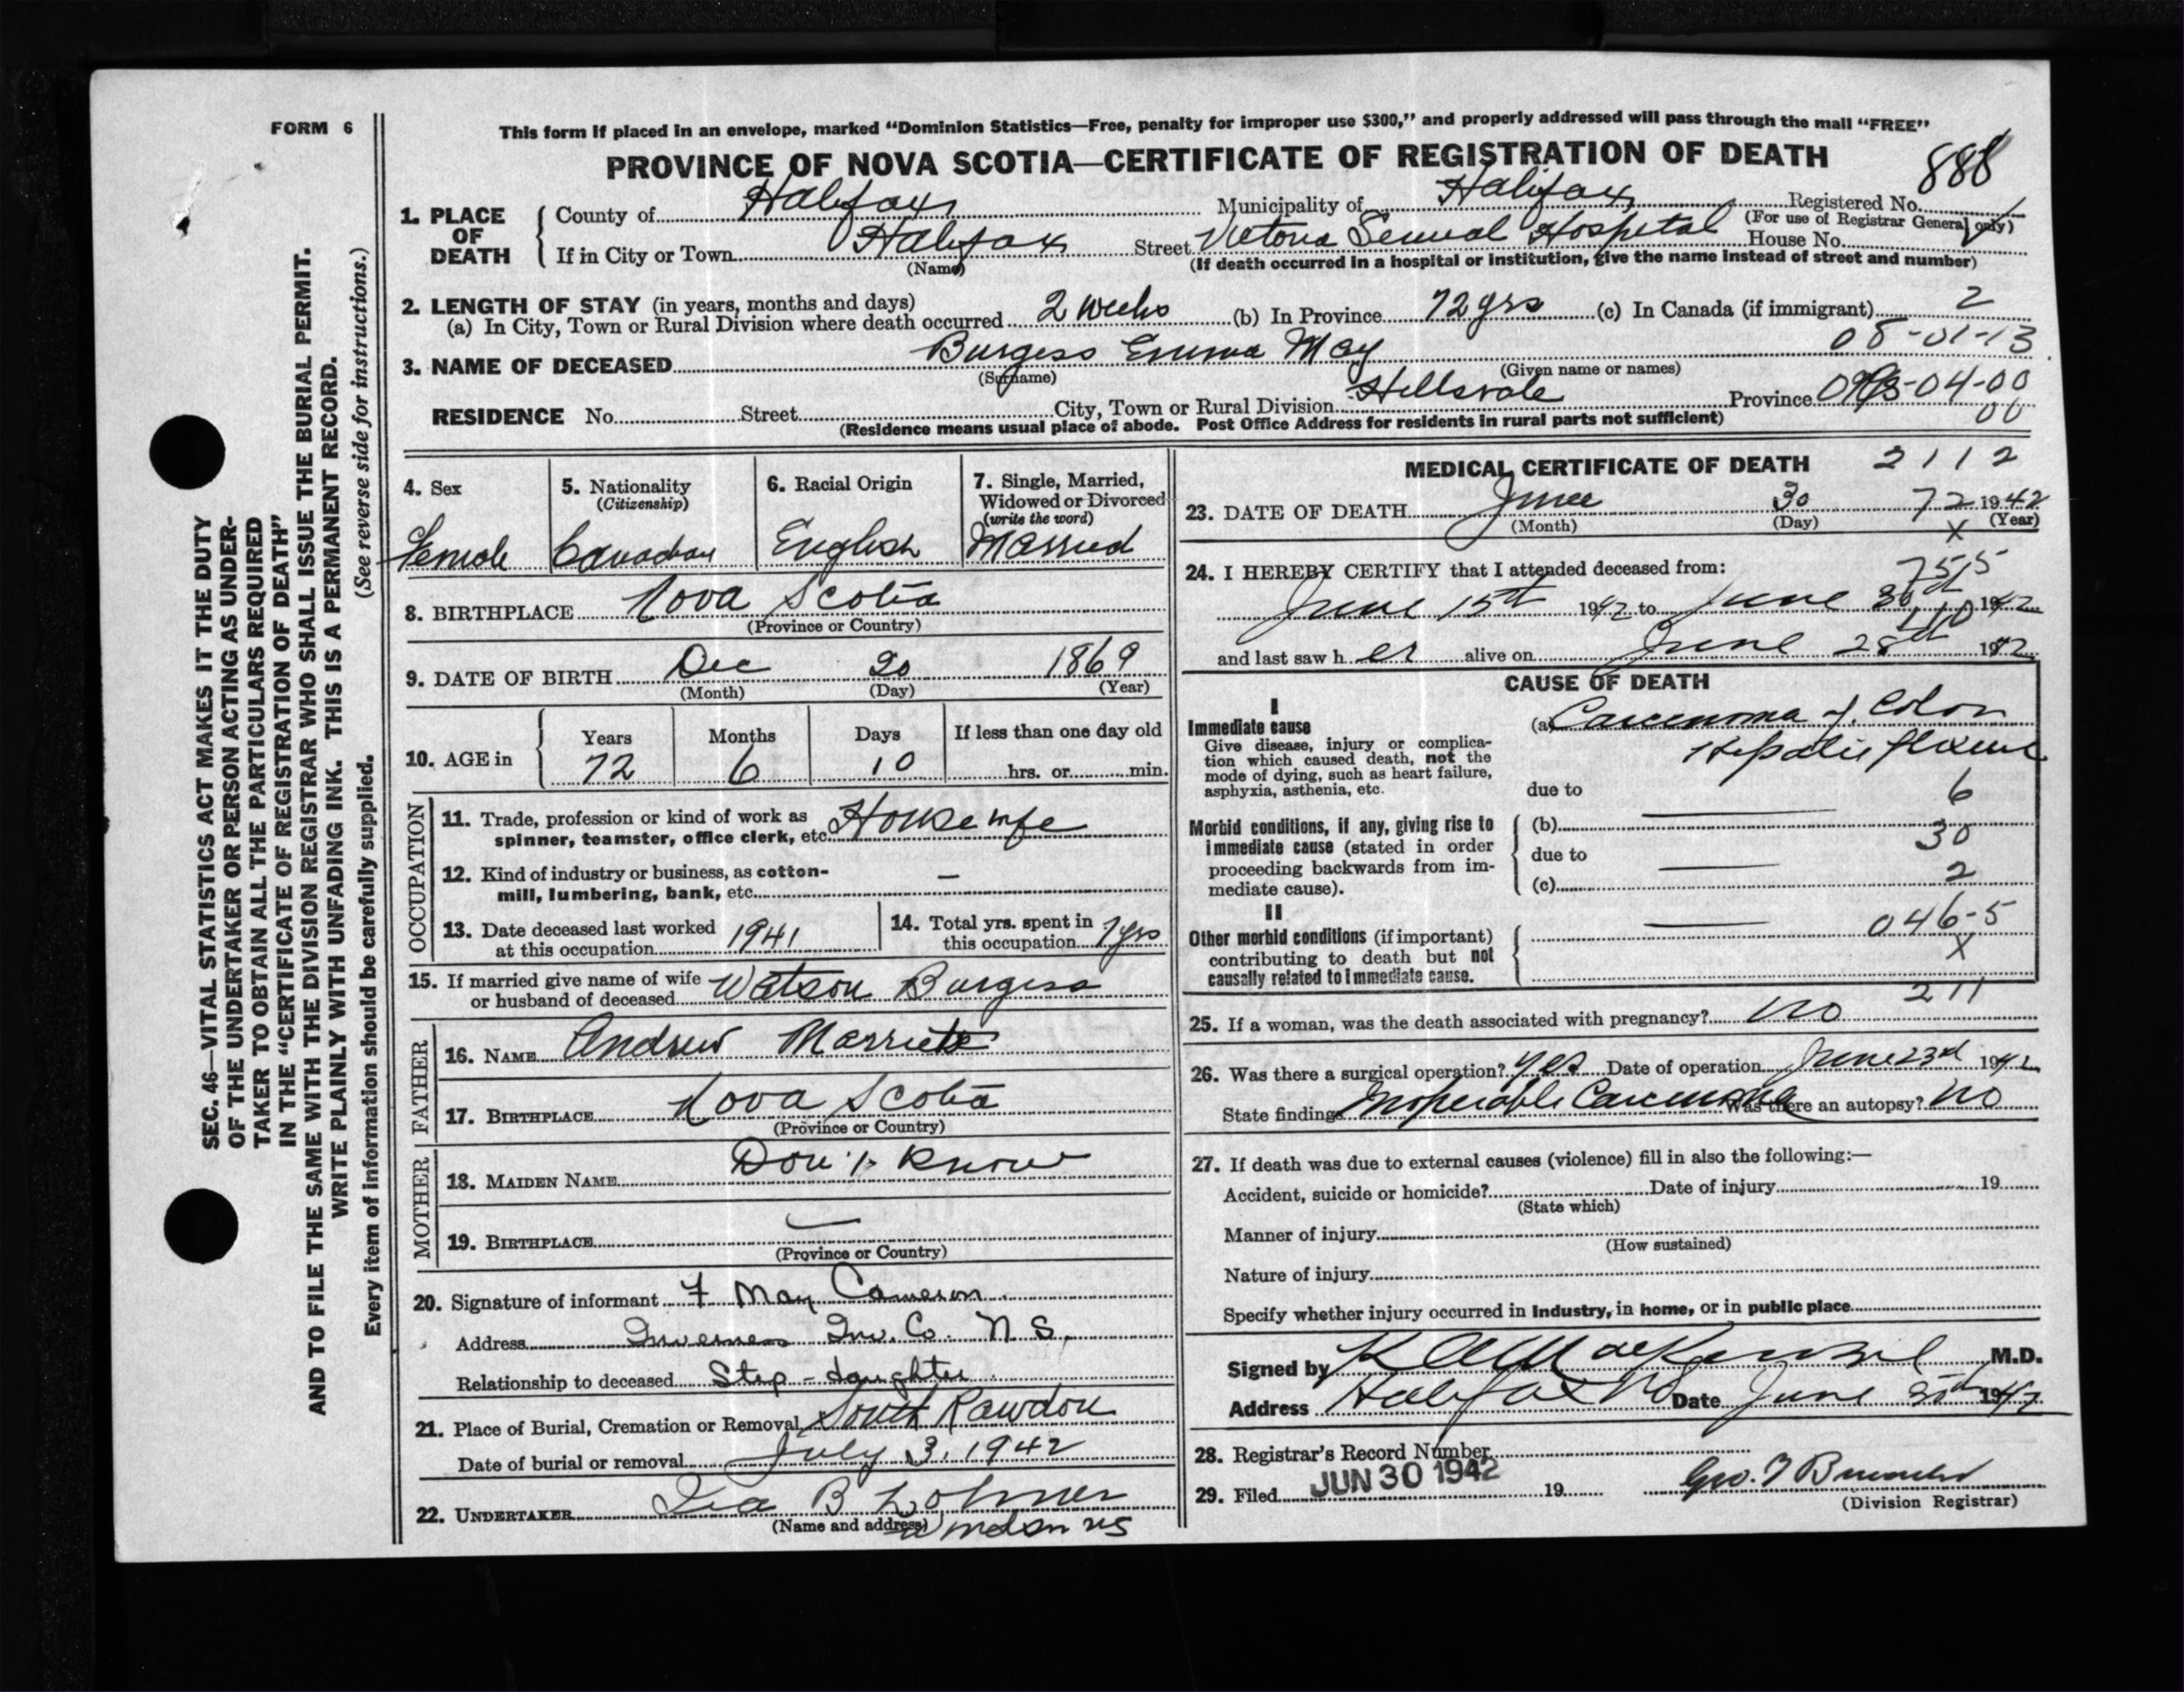 FORM 6
This form if placed in an envelope, marked "Dominion Statistics—Free, penalty for improper use $300," and properly addressed will pass through the mail "FREE"
PROVINCE OF NOVA SCOTIA—CERTIFICATE OF REGISTRATION OF DEATH
888
1. PLACE OF DEATH
County of Halifax Municipality of Halifax Registered No.
(For use of Registrar General only)
If in City or Town Halifax Street Victoria General Hospital House No.
(Name) (If death occurred in a hospital or institution, give the name instead of street and number)
2. LENGTH OF STAY (in years, months and days)
(a) In City, Town or Rural Division where death occurred 2 weeks (b) In Province 72 yrs (c) In Canada (if immigrant) 2
08-01-13
3. NAME OF DECEASED Burgess Emma May
(Surname) (Given name or names)
RESIDENCE No. Street City, Town or Rural Division Hillsvale Province -04-00
00
(Residence means usual place of abode. Post Office Address for residents in rural parts not sufficient)
SEC. 46—VITAL STATISTICS ACT MAKES IT THE DUTY
OF THE UNDERTAKER OR PERSON ACTING AS UNDER-
TAKER TO OBTAIN ALL THE PARTICULARS REQUIRED
IN THE "CERTIFICATE OF REGISTRATION OF DEATH"
AND TO FILE THE SAME WITH THE DIVISION REGISTRAR WHO SHALL ISSUE THE BURIAL PERMIT.
WRITE PLAINLY WITH UNFADING INK. THIS IS A PERMANENT RECORD.
(See reverse side for instructions.)
Every item of information should be carefully supplied.
4. Sex
Female
5. Nationality
(Citizenship)
Canadian
6. Racial Origin
English
7. Single, Married,
Widowed or Divorced
(write the word)
Married
8. BIRTHPLACE Nova Scotia
(Province or Country)
9. DATE OF BIRTH Dec 20 1869
(Month) (Day) (Year)
10. AGE in Years Months Days If less than one day old
72 6 10 hrs. or min.
OCCUPATION
11. Trade, profession or kind of work as
spinner, teamster, office clerk, etc. Housewife
12. Kind of industry or business, as cotton-
mill, lumbering, bank, etc. —
13. Date deceased last worked
at this occupation 1941
14. Total yrs. spent in
this occupation yrs
15. If married give name of wife
or husband of deceased Watson Burgess
FATHER
16. NAME Andrew
17. BIRTHPLACE Nova Scotia
(Province or Country)
MOTHER
18. MAIDEN NAME Don't Know
19. BIRTHPLACE —
(Province or Country)
20. Signature of informant F May Cameron
Address Inverness Inv. Co. N S.
Relationship to deceased Step-daughter
21. Place of Burial, Cremation or Removal South Rawdon
Date of burial or removal July 3, 1942
22. UNDERTAKER Ira B
(Name and address) Windsor NS
MEDICAL CERTIFICATE OF DEATH 2112
23. DATE OF DEATH June 30 72 1942
(Month) (Day) (Year)
X
24. I HEREBY CERTIFY that I attended deceased from: 7515
June 15th 1942 to June 30th 1942
and last saw her alive on June 28th 1942
CAUSE OF DEATH
I
Immediate cause
Give disease, injury or complica-
tion which caused death, not the
mode of dying, such as heart failure,
asphyxia, asthenia, etc.
(a) Carcinoma of Colon
Hepatic flexure
due to 6
Morbid conditions, if any, giving rise to
immediate cause (stated in order
proceeding backwards from im-
mediate cause).
(b) — 30
due to
(c) — 2
II
Other morbid conditions (if important)
contributing to death but not
causally related to immediate cause.
— 046-5
X
211
25. If a woman, was the death associated with pregnancy? no
26. Was there a surgical operation? yes Date of operation June 23rd 1942
State findings Inoperable Carcinoma Was there an autopsy? no
27. If death was due to external causes (violence) fill in also the following:—
Accident, suicide or homicide? Date of injury 19
(State which)
Manner of injury
(How sustained)
Nature of injury
Specify whether injury occurred in industry, in home, or in public place
Signed by K A MacKenzie M.D.
Address Halifax NS Date June 30th 1942
28. Registrar's Record Number
29. Filed JUN 30 1942 19 Geo.
(Division Registrar)